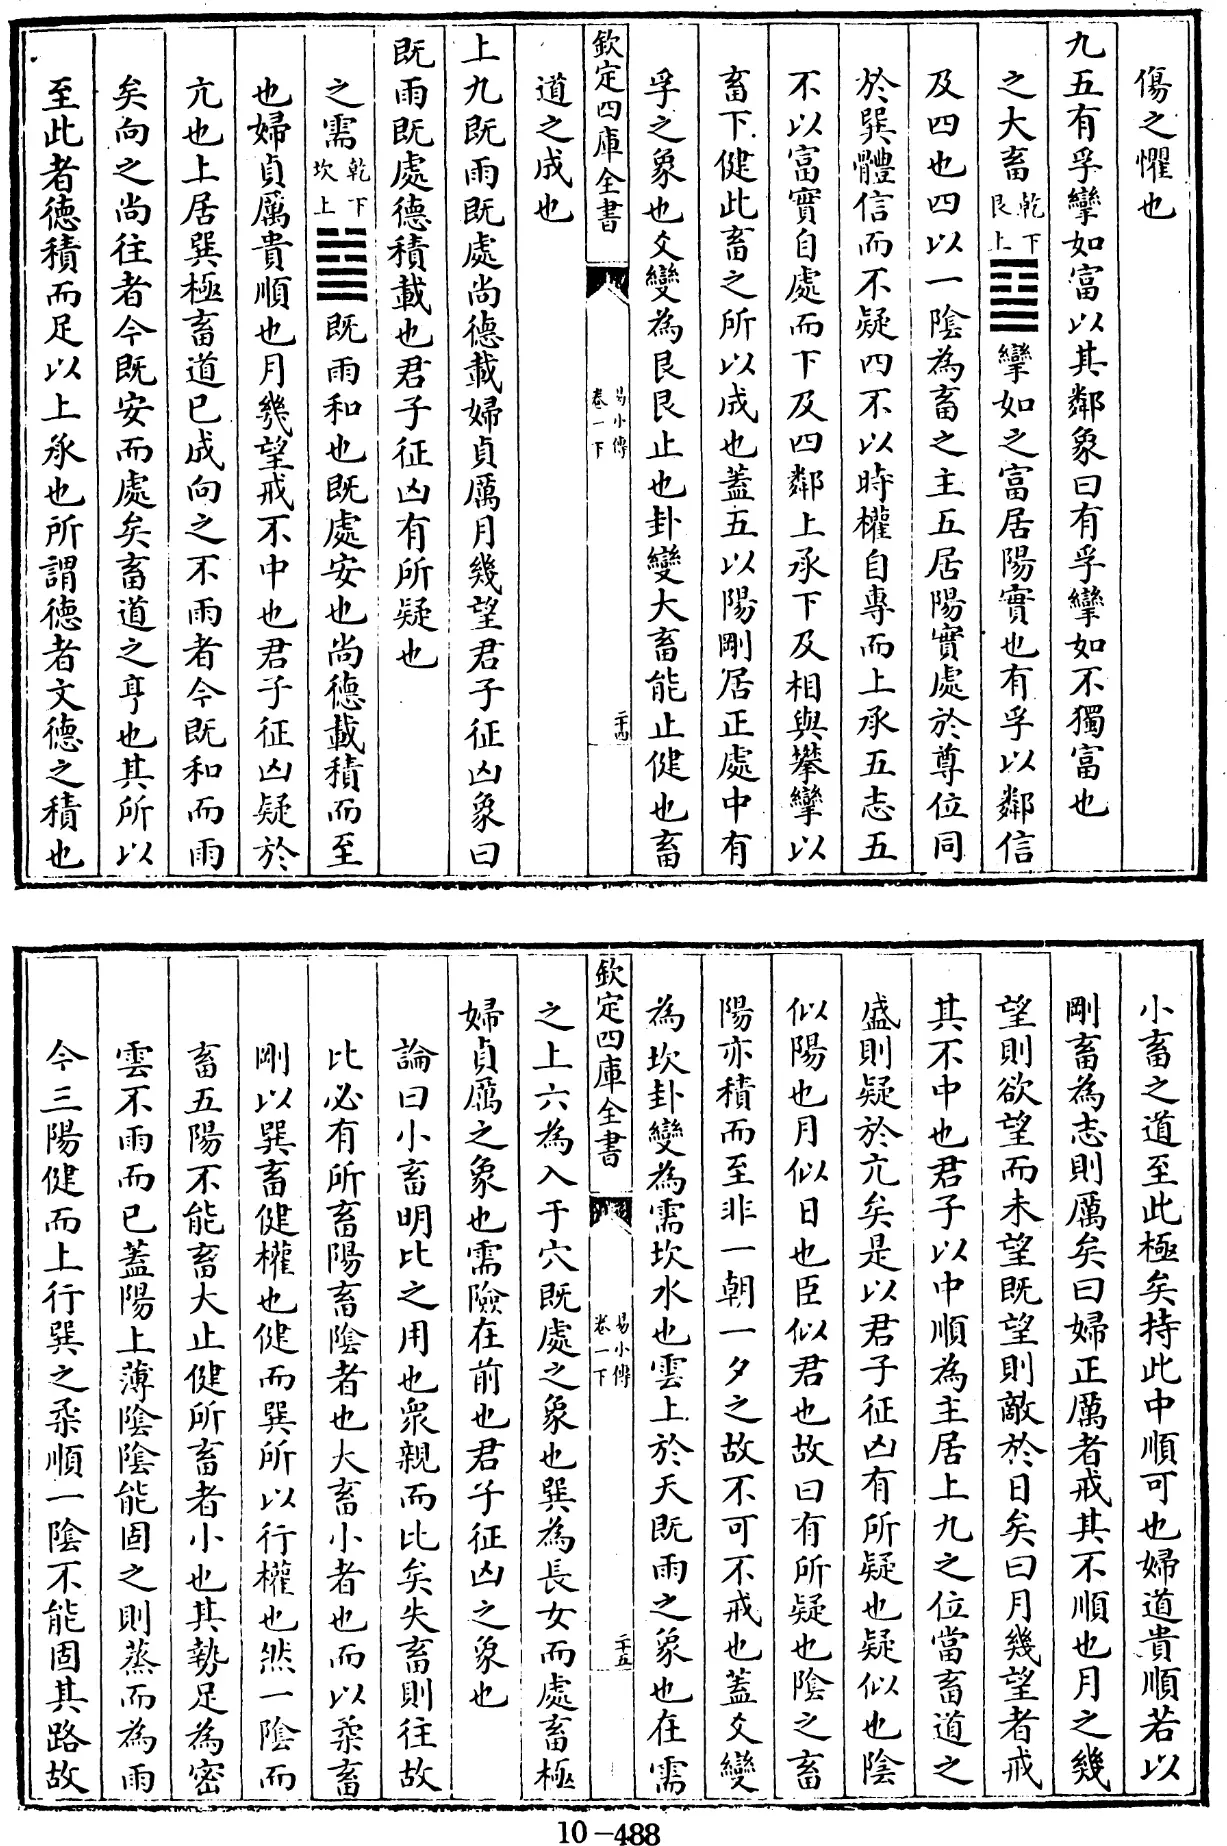 傷之懼也
九五有孚攣如富以其鄰象曰有孚攣如不獨富也
之大畜乾下艮上攣如之富居陽實也有孚以鄰信
及四也四以一陰為畜之主五居陽實處於尊位同
於巽體信而不疑四不以時權自專而上承五志五
不以富實自處而下及四鄰上承下及相與攀攣以
畜下健此畜之所以成也蓋五以陽剛居正處中有
孚之象也爻變為艮艮止也卦變大畜能止健也畜
欽定四庫全書
易小傳
卷一下
二十四
道之成也
上九既雨既處尚德載婦貞厲月幾望君子征凶象曰
既雨既處德積載也君子征凶有所疑也
之需乾下坎上既雨和也既處安也尚德載積而至
也婦貞厲貴順也月幾望戒不中也君子征凶疑於
亢也上居巽極畜道已成向之不雨者今既和而雨
矣向之尚往者今既安而處矣畜道之亨也其所以
至此者德積而足以上承也所謂德者文德之積也
小畜之道至此極矣持此中順可也婦道貴順若以
剛畜為志則厲矣曰婦正厲者戒其不順也月之幾
望則欲望而未望既望則敵於日矣曰月幾望者戒
其不中也君子以中順為主居上九之位當畜道之
盛則疑於亢矣是以君子征凶有所疑也疑似也陰
似陽也月似日也臣似君也故曰有所疑也陰之畜
陽亦積而至非一朝一夕之故不可不戒也蓋爻變
為坎卦變為需坎水也雲上於天既雨之象也在需
欽定四庫全書
易小傳
卷一下
二十五
之上六為入于穴既處之象也巽為長女而處畜極
婦貞厲之象也需險在前也君子征凶之象也
論曰小畜明比之用也眾親而比矣失畜則往故
比必有所畜陽畜陰者也大畜小者也而以柔畜
剛以巽畜健權也健而巽所以行權也然一陰而
畜五陽不能畜大止健所畜者小也其勢足為密
雲不雨而已蓋陽上薄陰陰能固之則蒸而為雨
今三陽健而上行巽之柔順一陰不能固其路故
10-488